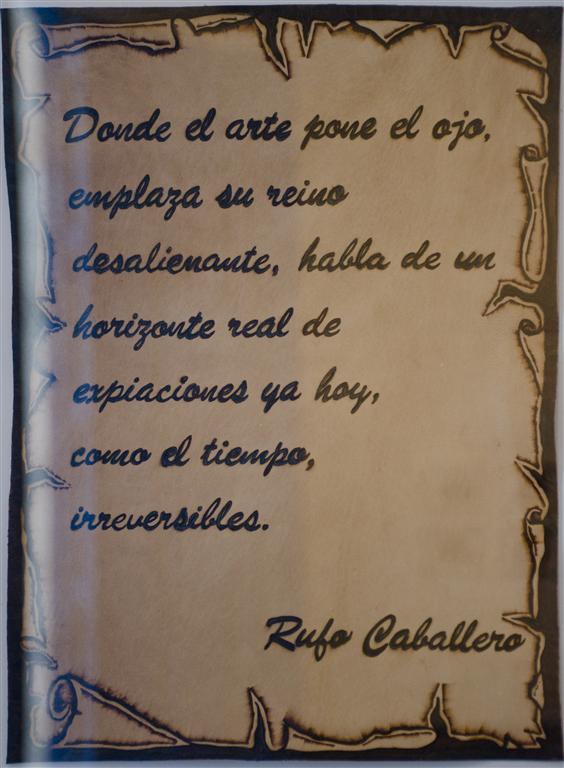 Donde el arte pone el ojo,
emplaza su reino
desalienante, habla de un
horizonte real de
expiaciones ya hoy,
como el tiempo,
irreversibles.
Rufo Caballero